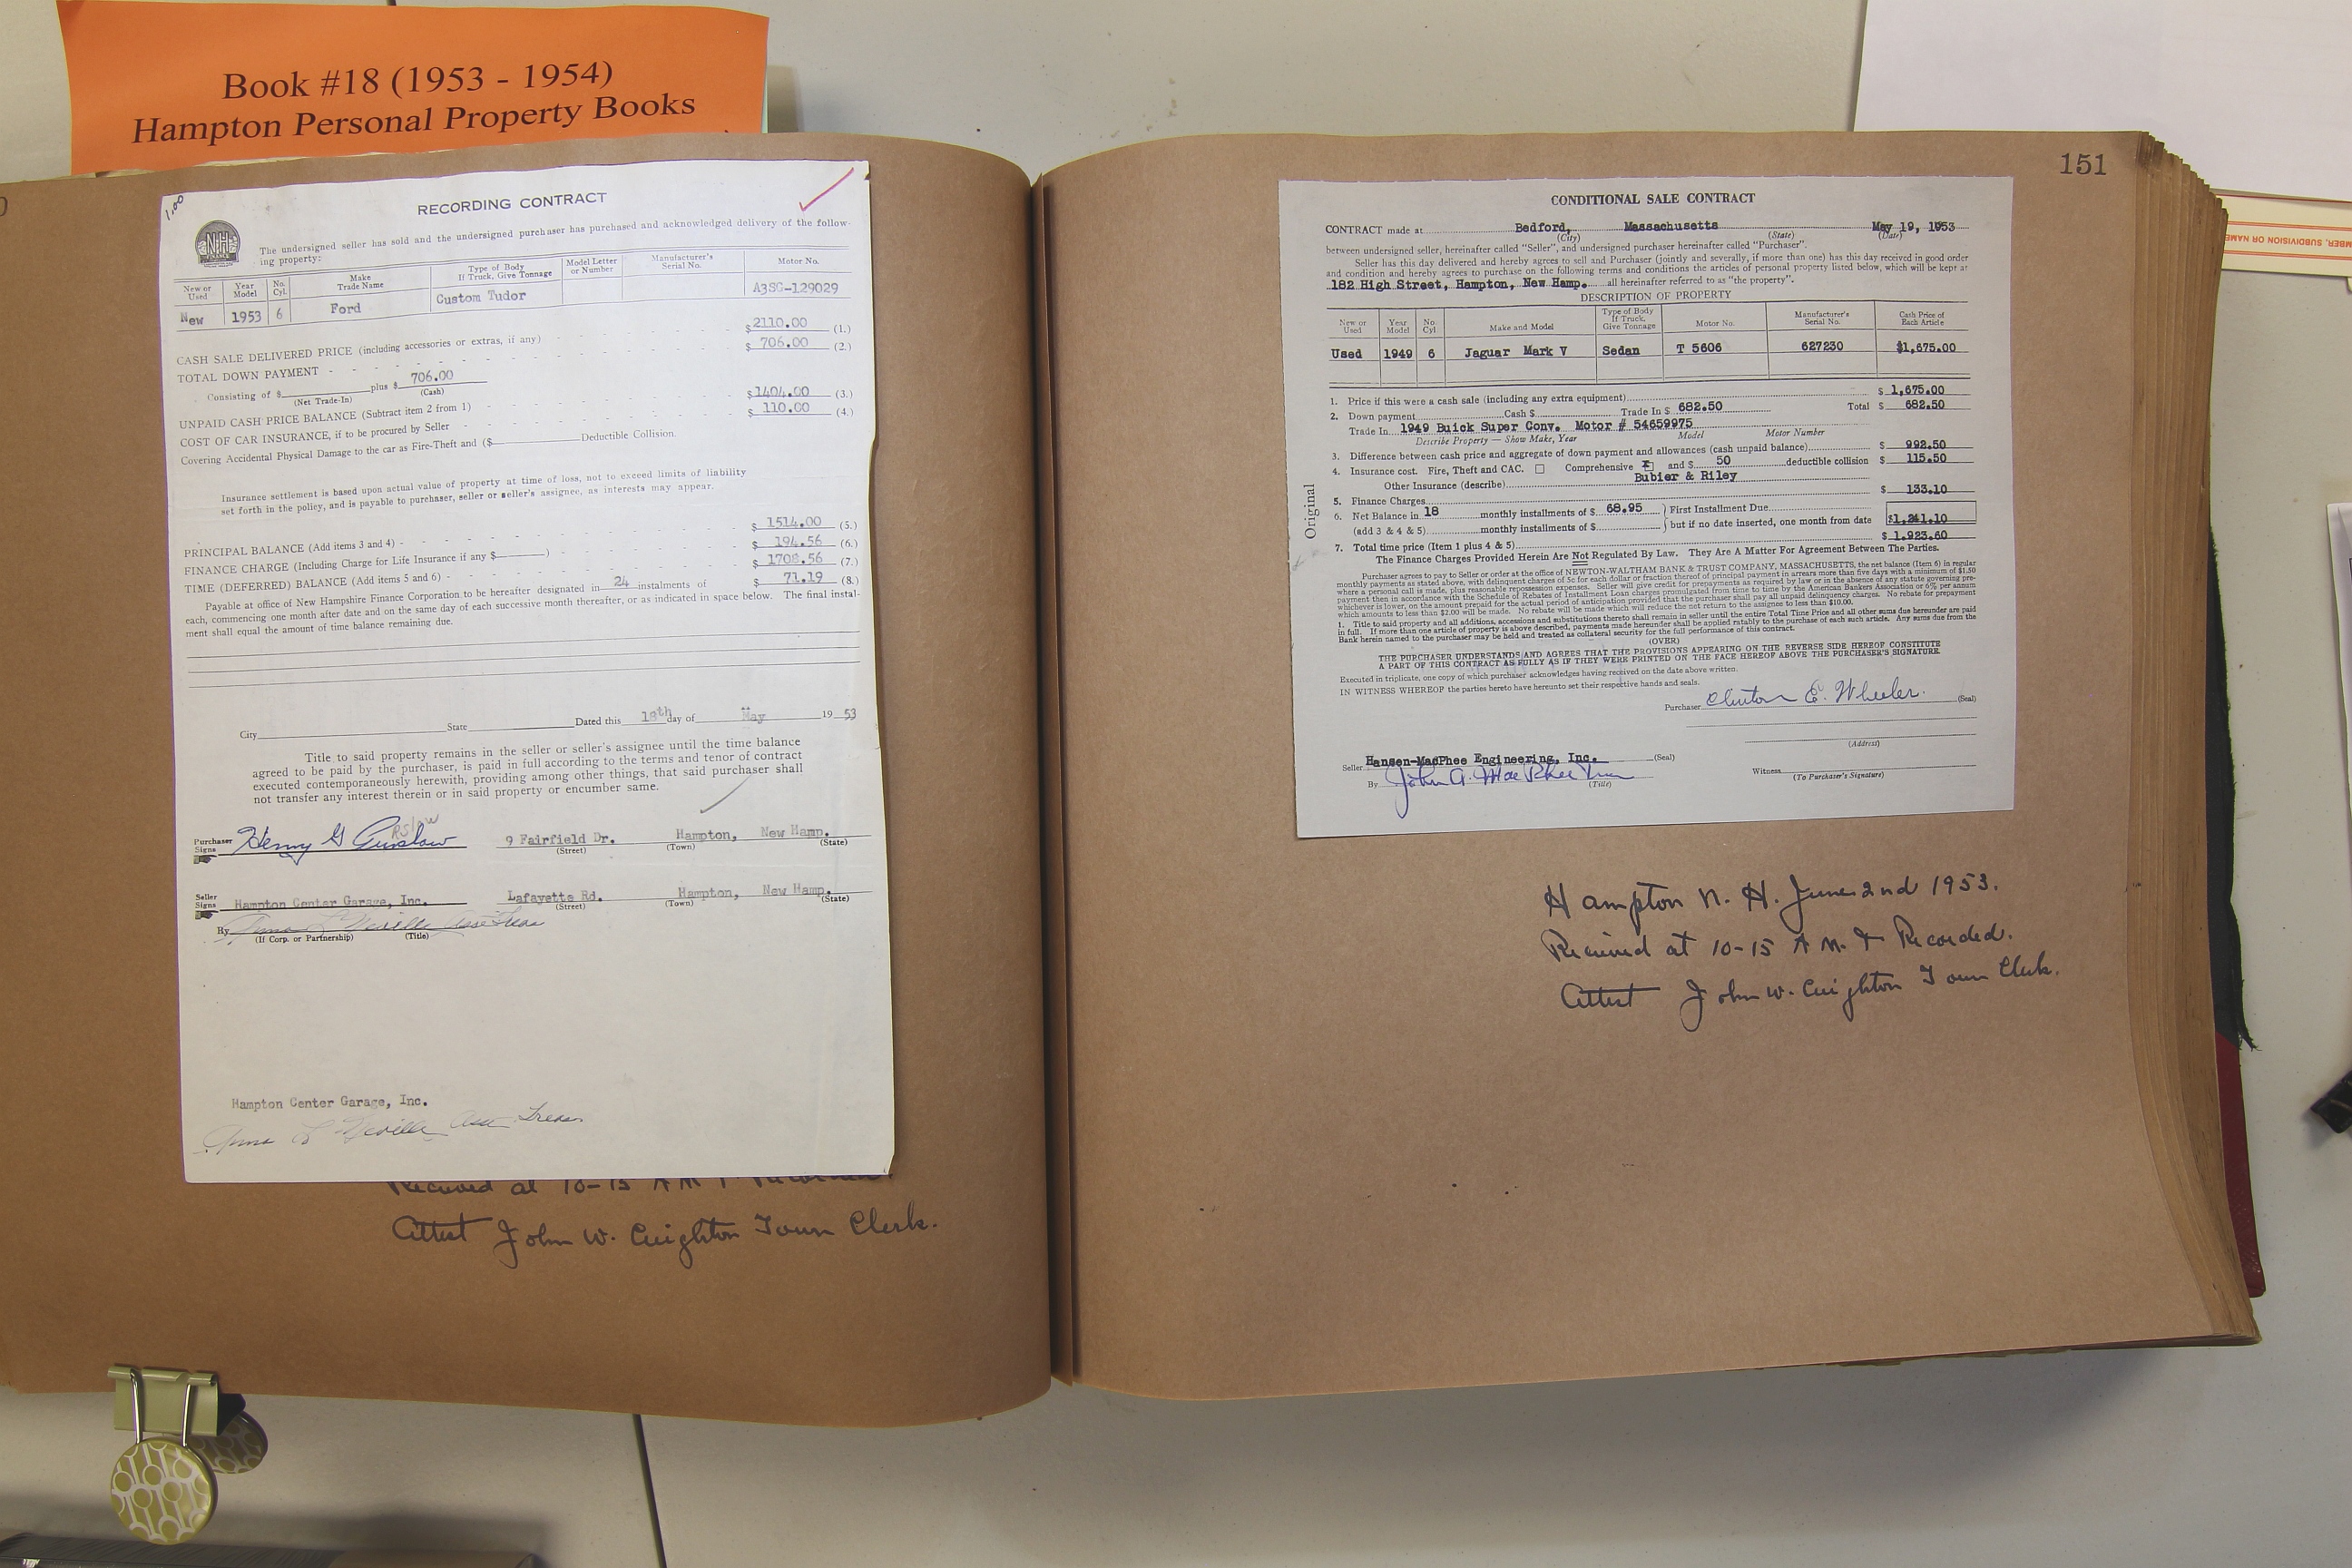 Book #18 (1953 - 1954)
Hampton Personal Property Books
1.00
RECORDING CONTRACT
NH
The undersigned seller has sold and the undersigned purchaser has purchased and acknowledged delivery of the follow-
ing property:
New or Used | Year Model | No. Cyl. | Make Trade Name | Type of Body If Truck, Give Tonnage | Model Letter or Number | Manufacturer's Serial No. | Motor No.
New | 1953 | 6 | Ford | Custom Tudor | A3SG-129029
CASH SALE DELIVERED PRICE (including accessories or extras, if any) - - - - - $ 2110.00 (1.)
TOTAL DOWN PAYMENT - - - - - $ 706.00 (2.)
Consisting of $ ______ plus $ 706.00
(Net Trade-In) (Cash)
UNPAID CASH PRICE BALANCE (Subtract item 2 from 1) - - - - - $ 1404.00 (3.)
COST OF CAR INSURANCE, if to be procured by Seller - - - - - $ 110.00 (4.)
Covering Accidental Physical Damage to the car as Fire-Theft and ($ ______ Deductible Collision.
Insurance settlement is based upon actual value of property at time of loss, not to exceed limits of liability
set forth in the policy, and is payable to purchaser, seller or seller's assignee, as interests may appear.
PRINCIPAL BALANCE (Add items 3 and 4) - - - - - $ 1514.00 (5.)
FINANCE CHARGE (Including Charge for Life Insurance if any $ ______ ) - - - - - $ 194.56 (6.)
TIME (DEFERRED) BALANCE (Add items 5 and 6) - - - - - $ 1708.56 (7.)
Payable at office of New Hampshire Finance Corporation to be hereafter designated in 24 instalments of $ 71.19 (8.)
each, commencing one month after date and on the same day of each successive month thereafter, or as indicated in space below. The final instal-
ment shall equal the amount of time balance remaining due.
City ______ State ______ Dated this 18th day of May 19 53
Title to said property remains in the seller or seller's assignee until the time balance
agreed to be paid by the purchaser, is paid in full according to the terms and tenor of contract
executed contemporaneously herewith, providing among other things, that said purchaser shall
not transfer any interest therein or in said property or encumber same.
Purchaser Signs Henry G 9 Fairfield Dr. Hampton, New Hamp.
(Street) (Town) (State)
Seller Signs Hampton Center Garage, Inc. Lafayette Rd. Hampton, New Hamp.
(Street) (Town) (State)
By Anna L Neville Asst Treas
(If Corp. or Partnership) (Title)
Hampton Center Garage, Inc.
Anna L Neville Asst Treas.
Received at 10-15 A M & Recorded
Attest John W. Creighton Town Clerk.
151
CONDITIONAL SALE CONTRACT
CONTRACT made at Bedford, Massachusetts May 19, 1953
(City) (State) (Date)
between undersigned seller, hereinafter called "Seller", and undersigned purchaser hereinafter called "Purchaser".
Seller has this day delivered and hereby agrees to sell and Purchaser (jointly and severally, if more than one) has this day received in good order
and condition and hereby agrees to purchase on the following terms and conditions the articles of personal property listed below, which will be kept at
182 High Street, Hampton, New Hamp. all hereinafter referred to as "the property".
DESCRIPTION OF PROPERTY
New or Used | Year Model | No. Cyl. | Make and Model | Type of Body If Truck, Give Tonnage | Motor No. | Manufacturer's Serial No. | Cash Price of Each Article
Used | 1949 | 6 | Jaguar Mark V | Sedan | T 5606 | 627230 | $1,675.00
1. Price if this were a cash sale (including any extra equipment) $ 1,675.00
2. Down payment Cash $ Trade In $ 682.50 Total $ 682.50
Trade In 1949 Buick Super Conv. Motor # 54659975
Describe Property — Show Make, Year Model Motor Number
3. Difference between cash price and aggregate of down payment and allowances (cash unpaid balance) $ 992.50
4. Insurance cost. Fire, Theft and CAC. ☐ Comprehensive ☒ and $ 50 deductible collision $ 115.50
Other Insurance (describe) Bubier & Riley
5. Finance Charges $ 133.10
6. Net Balance in 18 monthly installments of $ 68.95 } First Installment Due
(add 3 & 4 & 5) monthly installments of $ } but if no date inserted, one month from date $1,241.10
7. Total time price (Item 1 plus 4 & 5) $ 1,923.60
The Finance Charges Provided Herein Are Not Regulated By Law. They Are A Matter For Agreement Between The Parties.
Purchaser agrees to pay to Seller or order at the office of NEWTON-WALTHAM BANK & TRUST COMPANY, MASSACHUSETTS, the net balance (Item 6) in regular
monthly payments as stated above, with delinquent charges of 5c for each dollar or fraction thereof of principal payment in arrears more than five days with a minimum of $1.50
where a personal call is made, plus reasonable repossession expenses. Seller will give credit for prepayments as required by law or in the absence of any statute governing pre-
payment then in accordance with the Schedule of Rebates of Installment Loan charges promulgated from time to time by the American Bankers Association or 6% per annum
whichever is lower, on the amount prepaid for the actual period of anticipation provided that the purchaser shall pay all unpaid delinquency charges. No rebate for prepayment
which amounts to less than $2.00 will be made. No rebate will be made which will reduce the net return to the assignee to less than $10.00.
1. Title to said property and all additions, accessions and substitutions thereto shall remain in seller until the entire Total Time Price and all other sums due hereunder are paid
in full. If more than one article of property is above described, payments made hereunder shall be applied ratably to the purchase of each such article. Any sums due from the
Bank herein named to the purchaser may be held and treated as collateral security for the full performance of this contract.
(OVER)
THE PURCHASER UNDERSTANDS AND AGREES THAT THE PROVISIONS APPEARING ON THE REVERSE SIDE HEREOF CONSTITUTE
A PART OF THIS CONTRACT AS FULLY AS IF THEY WERE PRINTED ON THE FACE HEREOF ABOVE THE PURCHASER'S SIGNATURE.
Executed in triplicate, one copy of which purchaser acknowledges having received on the date above written.
IN WITNESS WHEREOF the parties hereto have hereunto set their respective hands and seals.
Purchaser Clinton E. Wheeler. (Seal)
(Address)
Seller Hansen-MacPhee Engineering, Inc. (Seal)
By John A. MacPhee (Title)
Witness (To Purchaser's Signature)
Original
Hampton N. H. June 2nd 1953.
Received at 10-15 A M. & Recorded.
Attest John W. Creighton Town Clerk.
MBER, SUBDIVISION OR NAME